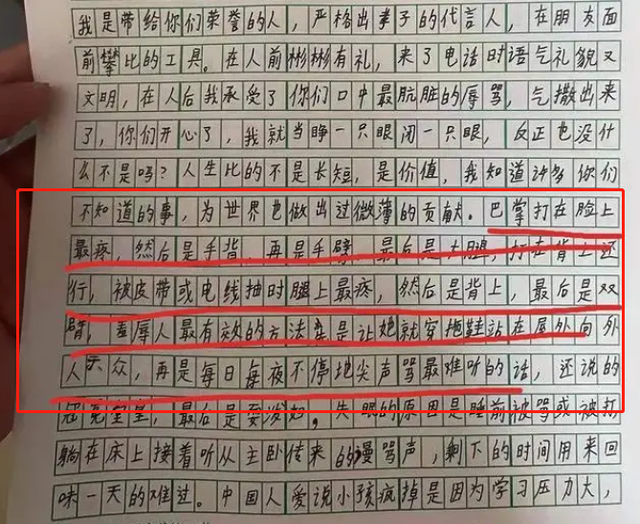 我是带给你们荣誉的人，严格出孝子的代言人，在朋友面
前攀比的工具。在人前彬彬有礼，来了电话时语气礼貌又
文明，在人后我承受了你们口中最肮脏的辱骂，气撒出来
了，你们开心了，我就当睁一只眼闭一只眼，反正也没什
么不是吗？人生比的不是长短，是价值，我知道许多你们
不知道的事，为世界也做出过微薄的贡献。巴掌打在脸上
最疼，然后是手背，再是手臂，最后是大腿，打在背上还
行，被皮带或电线抽时腿上最疼，然后是背上，最后是双
臂，羞辱人最有效的方法是让她就穿拖鞋站在屋外向外
人大众，再是每日每夜不停地尖声骂最难听的话，还说的
冠冕堂皇，最后是耍泼妇。失眠的原因是睡前被骂或被打
躺在床上接着听从主卧传来的谩骂声，剩下的时间用来回
味一天的难过。中国人爱说小孩疯掉是因为学习压力大，